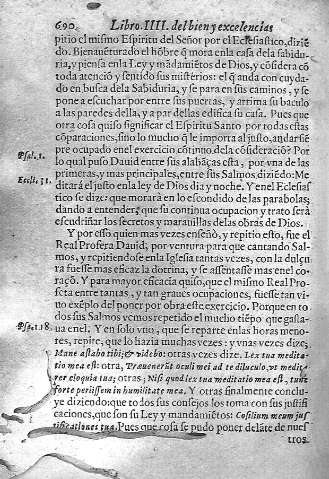 690. Libro IIII. del bien y excelencias
pitio el mismo Espiritu del Señor por el Eclesiastico, diziē
do. Bienauēturado el hōbre q̄ mora enla casa dela sabidu-
ria, y piensa enla Ley y mādamiētos de Dios, y cōsidera cō
toda atenciō y sentido sus misterios: el q̄ anda con cuyda-
do en busca dela Sabiduria, y se para en sus caminos, y se
pone a escuchar por entre sus puertas, y arrima su baculo
a las paredes della, y a par dellas edifica su casa. Pues que
otra cosa quiso significar el Espiritu Santo por todas estas
cōparaciones, sino lo mucho q̄ le importa al justo, andar siē
pre ocupado enel exercicio cōtinuo dela cōsideraciō? Por
Psal. 1.
lo qual puso Dauid entre sus alabāças esta, por vna de las
primeras, y mas principales, entre sus Salmos diziēdo: Me
Eccli. 51.
ditará el justo enla ley de Dios dia y noche. Y enel Eclesias
tico se dize: que morará en lo escondido de las parabolas;
dando a entender, que su continua ocupacion y trato será
escudriñar los secretos y marauillas de las obras de Dios.
Y por esso quien mas enseñó, y repitio esto, fue el
Real Profera Dauid; por ventura para que cantando Sal-
mos, y repitiendose enla Iglesia tantas vezes, con la dulçu
ra fuesse mas eficaz la dotrina, y se assentasse mas enel co-
raçō. Y para mayor eficacia quiso, que el mismo Real Pro-
feta entre tantas, y tan graues ocupaciones, fuesse tan vi-
uo exēplo del poner por obra este exercicio. Porque en to
dos sus Salmos vemos repetido el mucho tiēpo que gasta-
Psa. 118.
ua enel. Y en solo vno, que se reparte enlas horas meno-
res, repite, que lo hazia muchas vezes: y vnas vezes dize;
Mane astabo tibi & videbo: otras vezes dize. Lex tua medita-
tio mea est: otra, Præuenerūt oculi mei ad te diluculo, vt medita
rer eloquia tua; otras; Nisi quod lex tua meditatio mea est, tunc
forte periissem in humilitate mea. Y otras finalmente conclu-
ye diziendo: que todos sus consejos los toma con sus justifi
caciones, que son su Ley y mandamiētos: Cōsilium meum jus
tificationes tua. Pues que cosa se pudo poner delāte de nues
tros